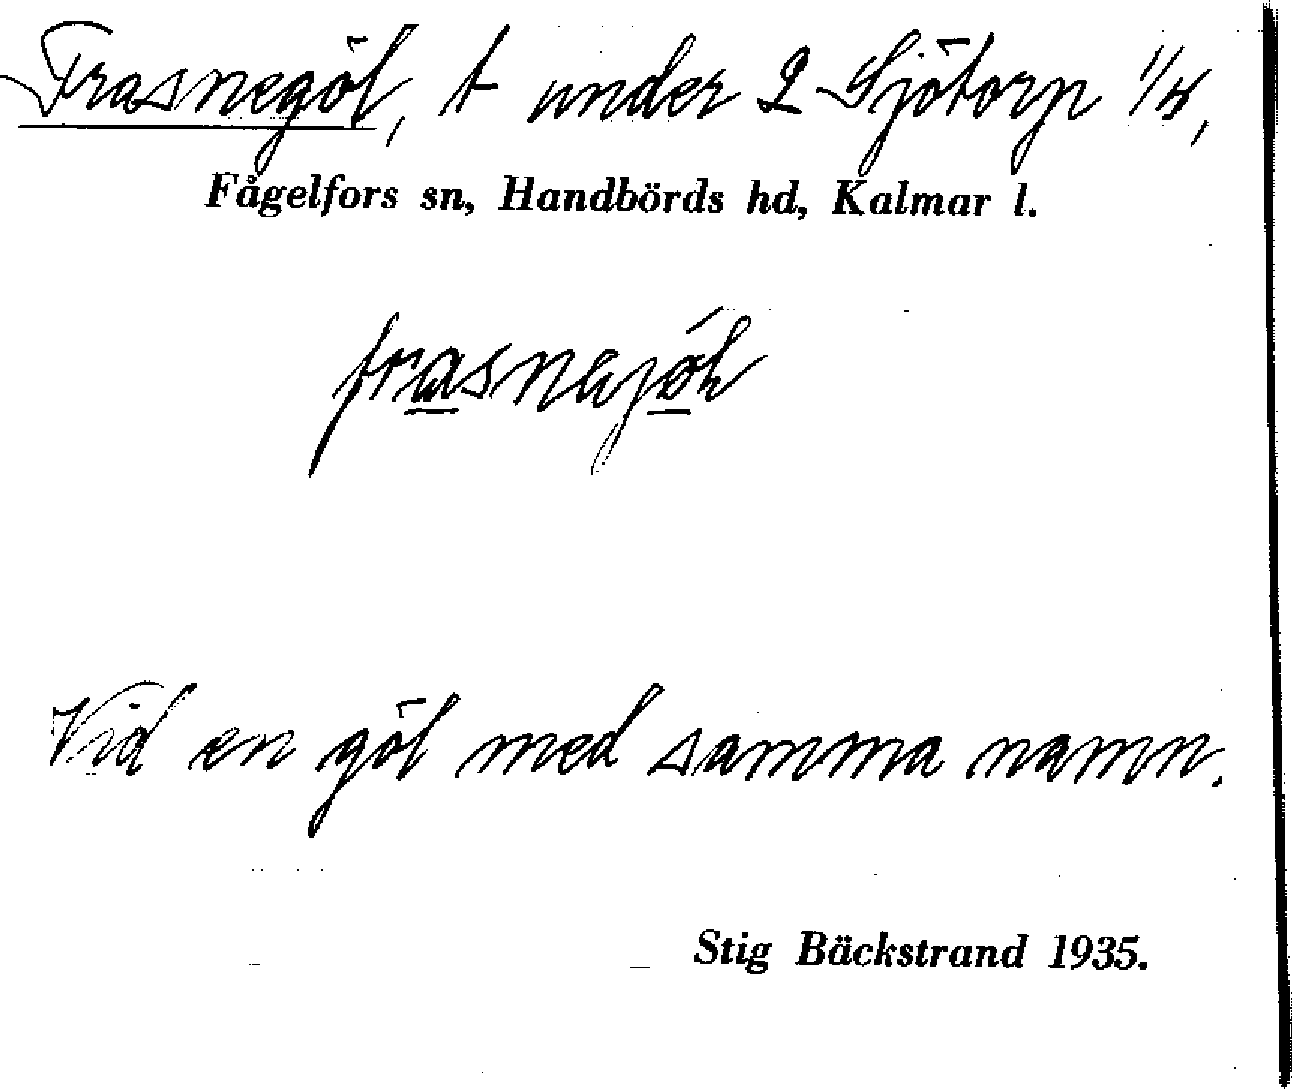 Frasnegöl, t under 2 Sjötorp 1/4,
Fågelfors sn, Handbörds hd, Kalmar l.
Vid en göl med samma namn.
Stig Bäckstrand 1935.